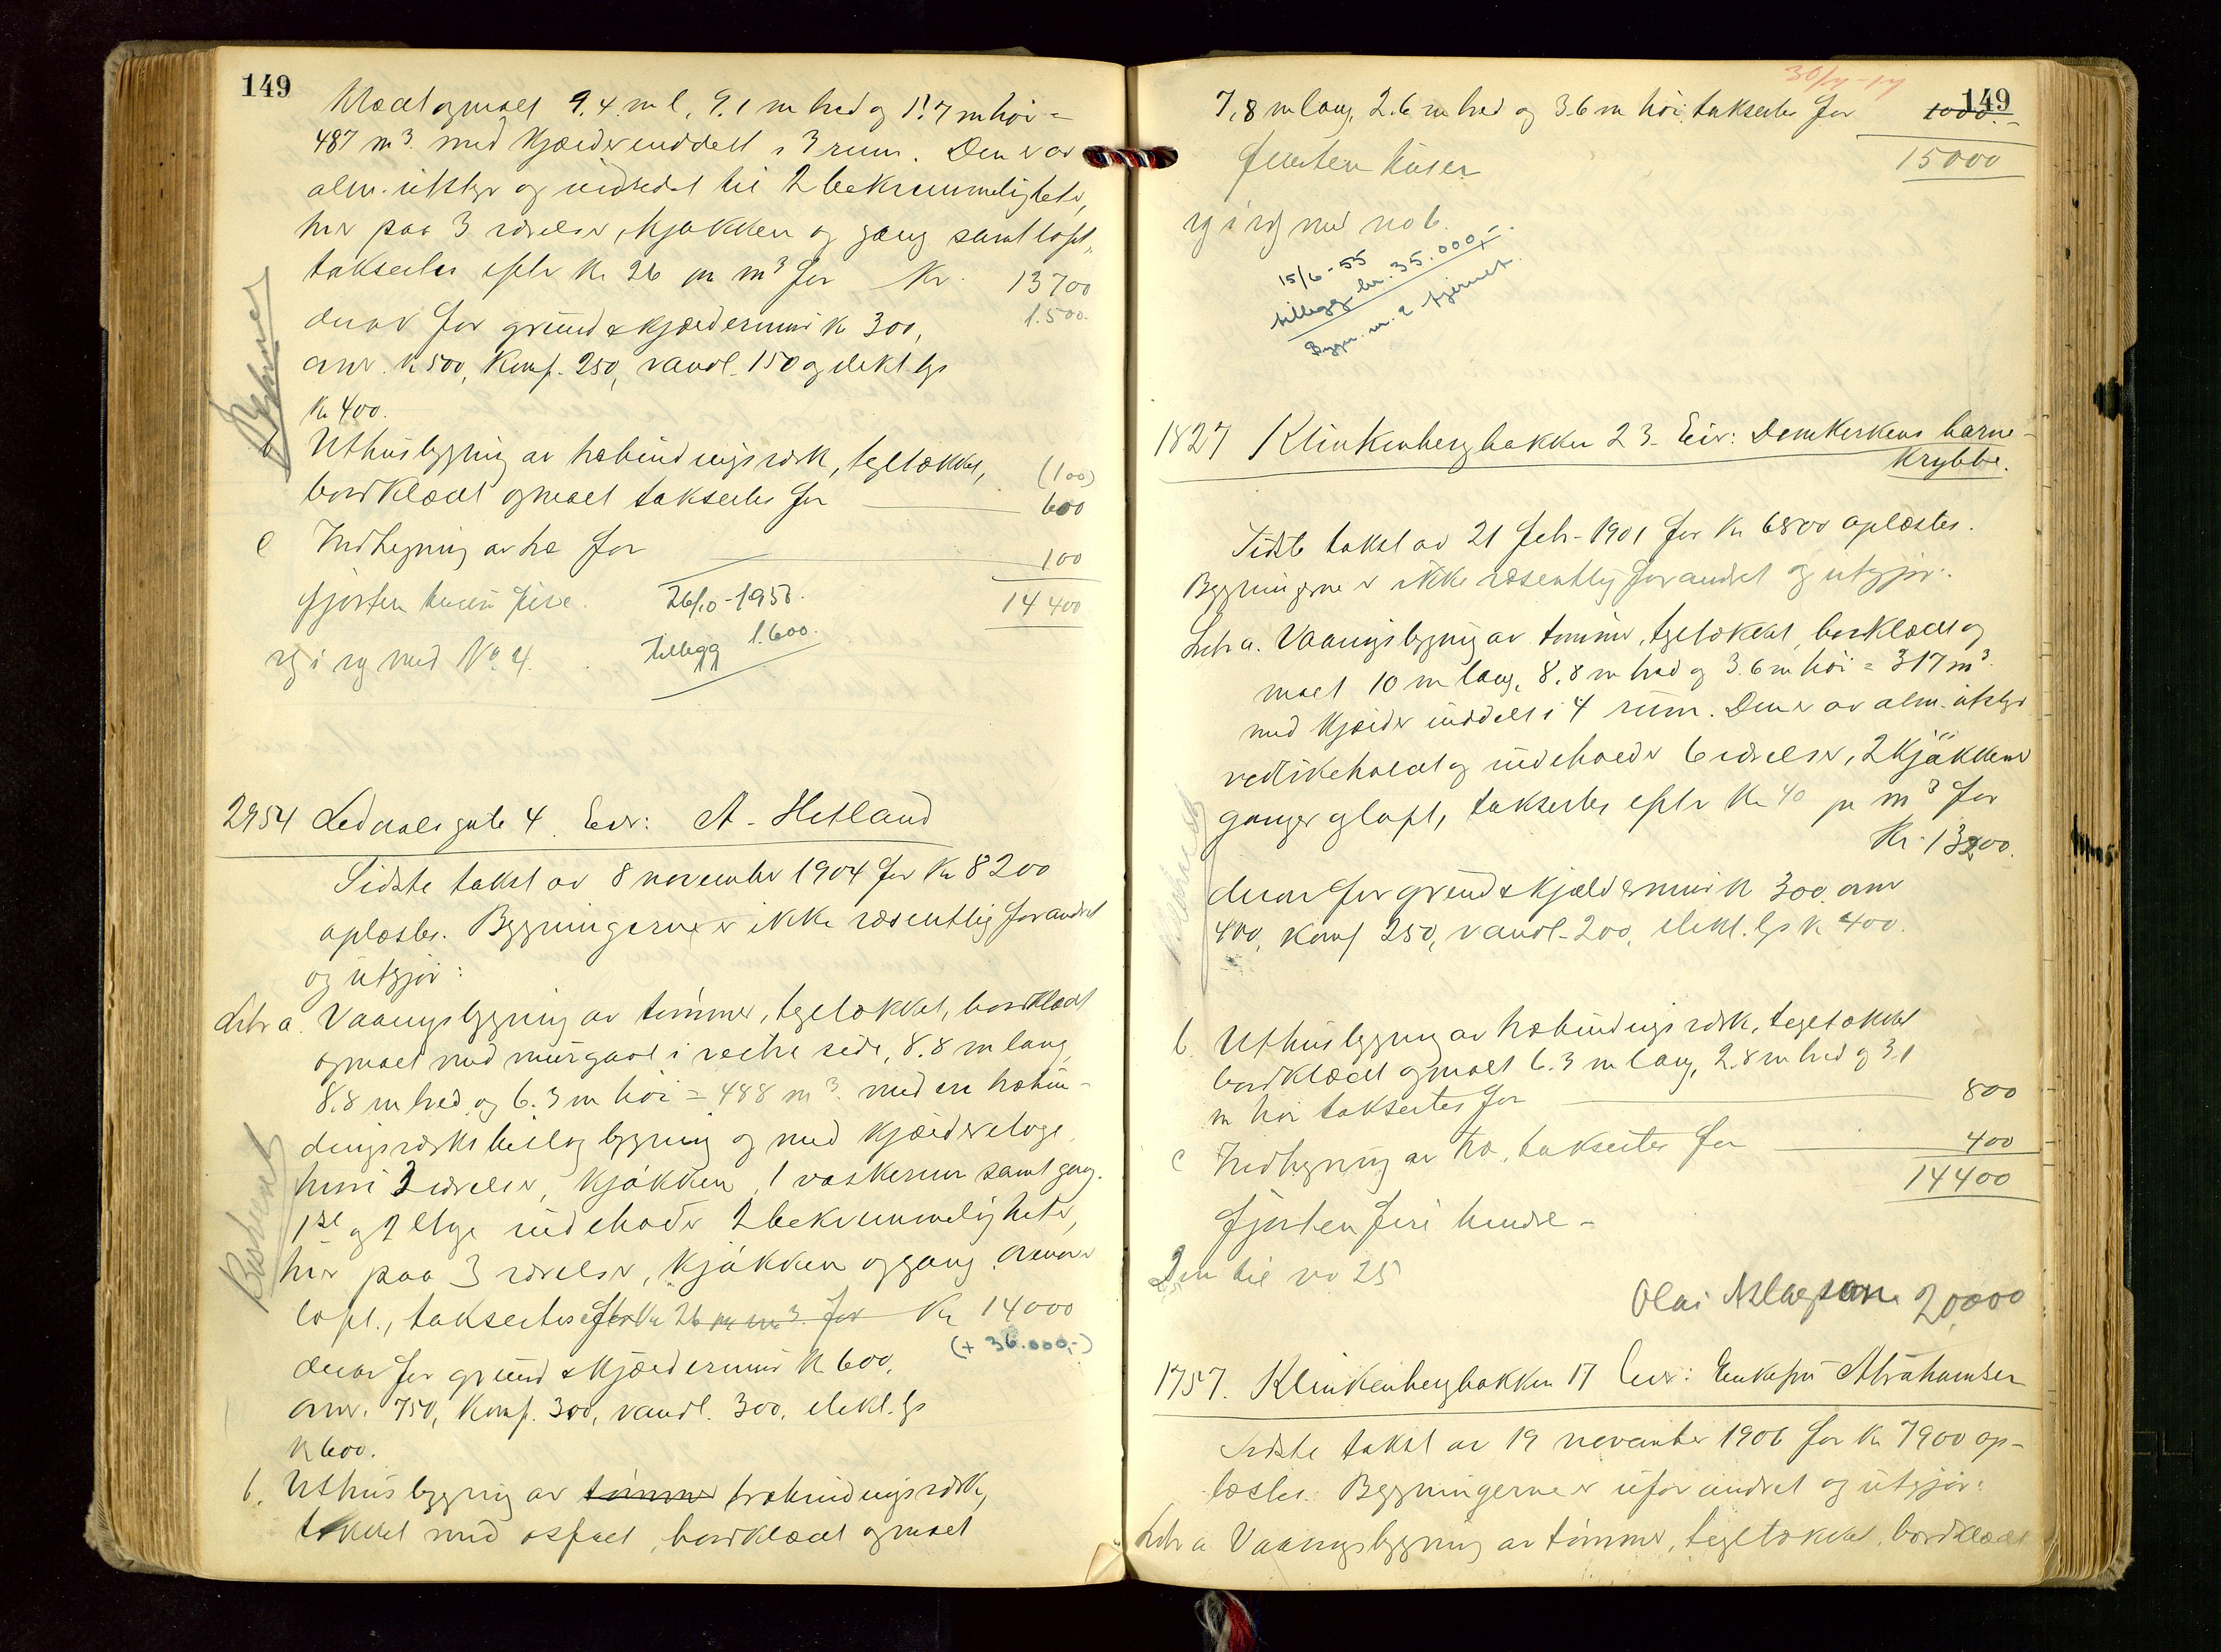 149
klædt og malt 9.4 m l, 9.1 m bred og 5.7 m høi =
487 m³ med kjælder inddelt i 3 rum. Den er av
alm. utstyr og indredet til 2 bekvemmeligheter,
hver paa 3 værelser, kjøkken og gang samt loft,
takseertes efter Kr 26 pr m³ for Kr. 13700
1.500.
derav for grund & kjældermur kr 300,
anv. kr 500, Komf. 250, vandl. 150 og elekt. lys
kr 400.
b Uthusbygning av træbindingsverk, tegltækket, (100)
bordklædt og malt takseertes for 600
c Indhegning av træ for 100
fjorten tusen fire 14400
26/10-1950.
rg i rg med No. 4. tillegg 1.600.
2954 Ledaals gate 4. Eier: A. Hetland
Sidste takst av 8 november 1904 for Kr 8200
oplæstes. Bygningerne er ikke væsentlig forandret
og utgjør:
Litr a. Vaaningsbygning av tømmer, tegltækket, bordklædt
og malt med murgavl i vestre side, 8.8 m lang,
8.8 m bred og 6.3 m høi = 488 m³. med en træbin-
dingsverks tilbygning og med kjælderetage
hvori 2 værelser, kjøkken, 1 vaskerum samt gang.
1ste og 2 etage indeholder 2 bekvemmeligheter,
hver paa 3 værelser, kjøkken og gang. Ovenover
loft, takseertes efter Kr 26 pr m³. for Kr 14000
(+ 36.000,-)
derav for grund & kjældermur Kr 600,
anv. 750, Komf. 300, vandl. 300, elekt. lys
kr 600.
b. Uthusbygning av tømmer træbindingsverk,
tækket med asfalt, bordklædt og malt
149
30/4-14
7.8 m lang, 2.6 m bred og 3.6 m høi takseertes for 1000.-
femten tusen 15000
rg i rg med no 6.
15/6-55
tillegg kr. 35.000,-.
Bygn. nr. 2 fjernet.
1827 Klinkenbergbakken 23. Eier: Domkirkens barne-
krybbe.
Sidste takst av 21 febr. 1901 for Kr 6800 oplæstes.
Bygningerne er ikke væsentlig forandret og utgjør.
Litr a. Vaaningsbygning av tømmer, tegltækket, bordklædt og
malt 10 m lang, 8.8 m bred og 3.6 m høi = 317 m³.
med kjælder inddelt i 4 rum. Den er av alm. utstyr
vedlikeholdt og indeholder 6 værelser, 2 kjøkkener
ganger og loft, takseertes efter Kr 40 pr m³ for
Kr. 13200.
derav for grund & kjældermur kr 300. anv
400, Komf 250, vandl. 200, elekt. lys kr 400.
b. Uthusbygning av træbindingsverk, tegltækket
bordklædt og malt 6.3 m lang, 2.8 m bred og 3.1
m høi takseertes for 800
c Indhegning av træ, takseertes for 400
14400
fjorten fire hundre -
til no 25
Olai Aslagson 20000
1757. Klinkenbergbakken 17 Eier: Enkefru Abrahamsen
Sidste takst av 19 november 1906 for Kr 7900 op-
læstes. Bygningerne er uforandret og utgjør:
Litr a Vaaningsbygning av tømmer, tegltækket, bordklædt